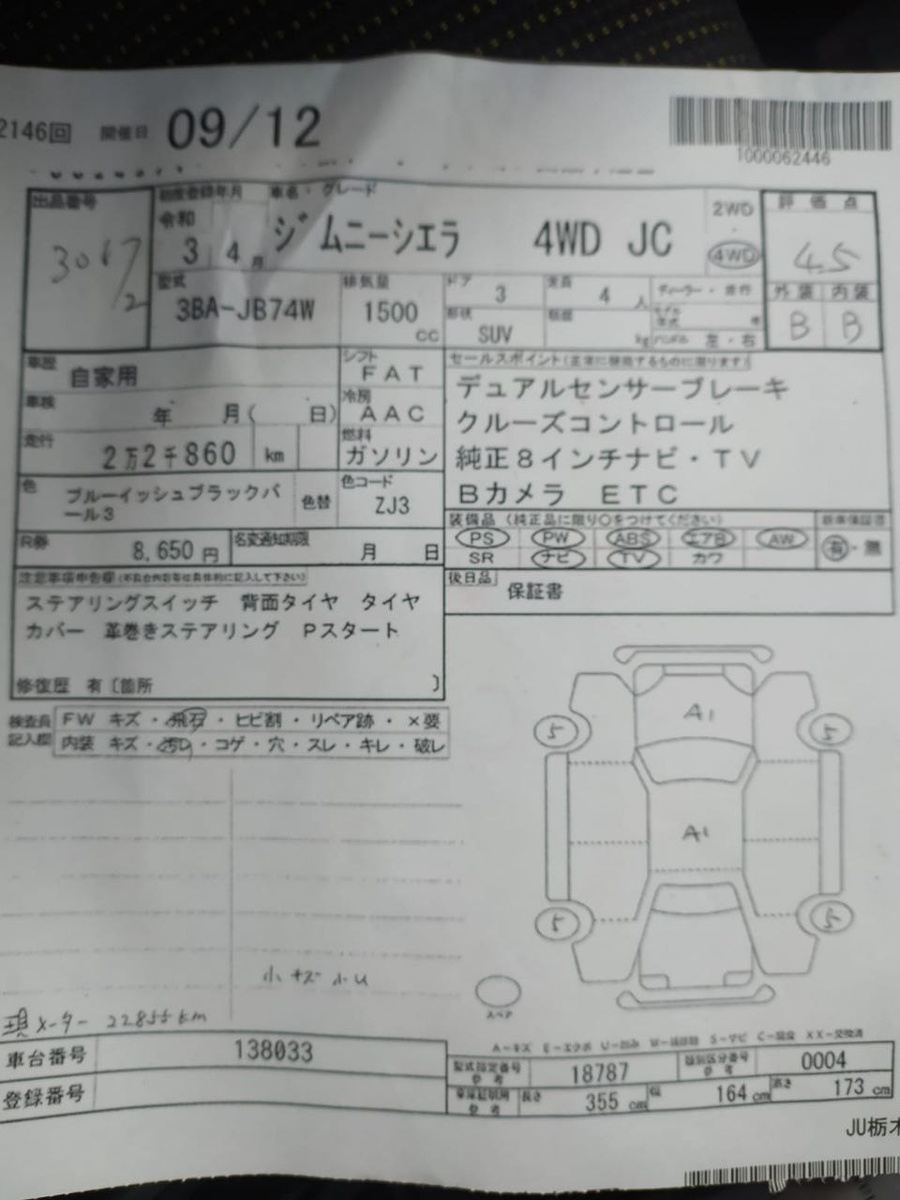 2146回 開催日 09/12
1000062446
出品番号 初度登録年月 車名・グレード 評価点
令和 3 4月 ジムニーシエラ 4WD JC 2WD 4WD
3017 4.5
2
型式 排気量 ドア 3 定員 4人 ディーラー・並行 外装 内装
3BA-JB74W 1500cc 形状 SUV 積載 kg モデル年式 年 ハンドル 左・右 B B
車歴 自家用 シフト FAT
車検 年 月( 日) 冷房 AAC
走行 2万2千860 km 燃料 ガソリン
セールスポイント(正常に稼働するものに限ります)
デュアルセンサーブレーキ
クルーズコントロール
純正8インチナビ・TV
Bカメラ ETC
色 ブルーイッシュブラックパール3 色替 色コード ZJ3
R券 8,650円 名変通知期限 月 日
装備品(純正品に限り○をつけてください) 新車保証書
PS PW ABS エアB AW 有・無
SR ナビ TV カワ
後日品 保証書
注意事項申告欄
ステアリングスイッチ 背面タイヤ タイヤ
カバー 革巻きステアリング Pスタート
修復歴 有〔箇所 〕
検査員記入欄 FW キズ・飛石・ヒビ割・リペア跡・×要
内装 キズ・汚れ・コゲ・穴・スレ・キレ・破レ
A1
5 5
A1
5 5
小キズ小U
スペア
現メーター 22855km
A-キズ E-エクボ U-凹み W-補修跡 S-サビ C-腐食 XX-交換済
車台番号 138033
型式指定番号 参考 18787 類別区分番号 参考 0004
登録番号
車庫証明用 参考 長さ 355cm 幅 164cm 高さ 173cm
JU栃木